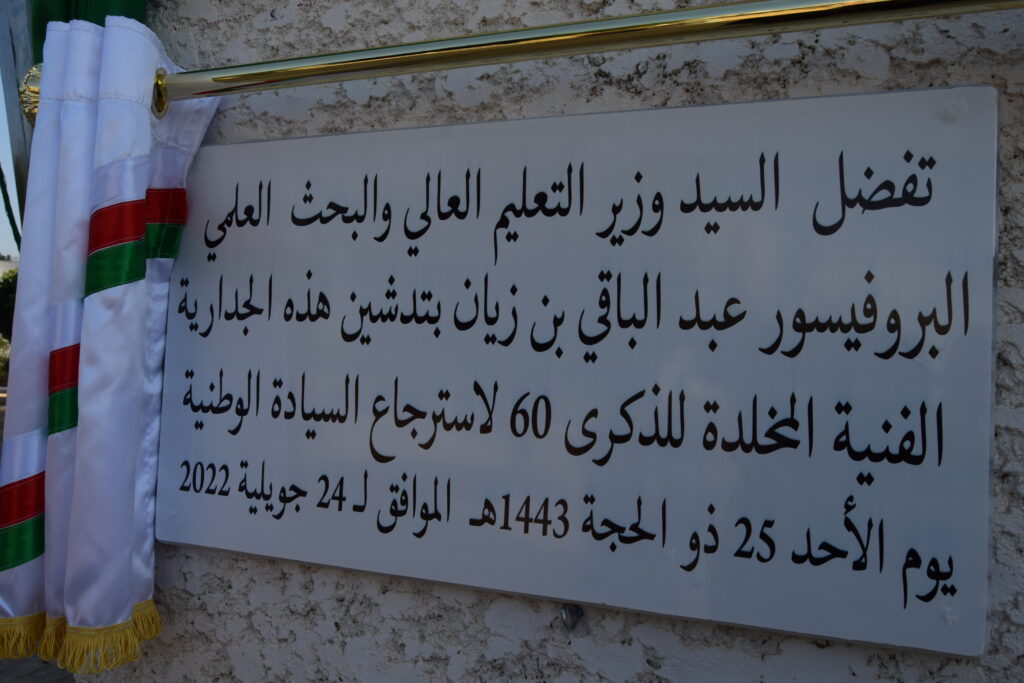 تفضل السيد وزير التعليم العالي والبحث العلمي
البروفيسور عبد الباقي بن زيان بتدشين هذه الجدارية
الفنية المخلدة للذكرى 60 لاسترجاع السيادة الوطنية
يوم الأحد 25 ذو الحجة 1443هـ الموافق لـ 24 جويلية 2022